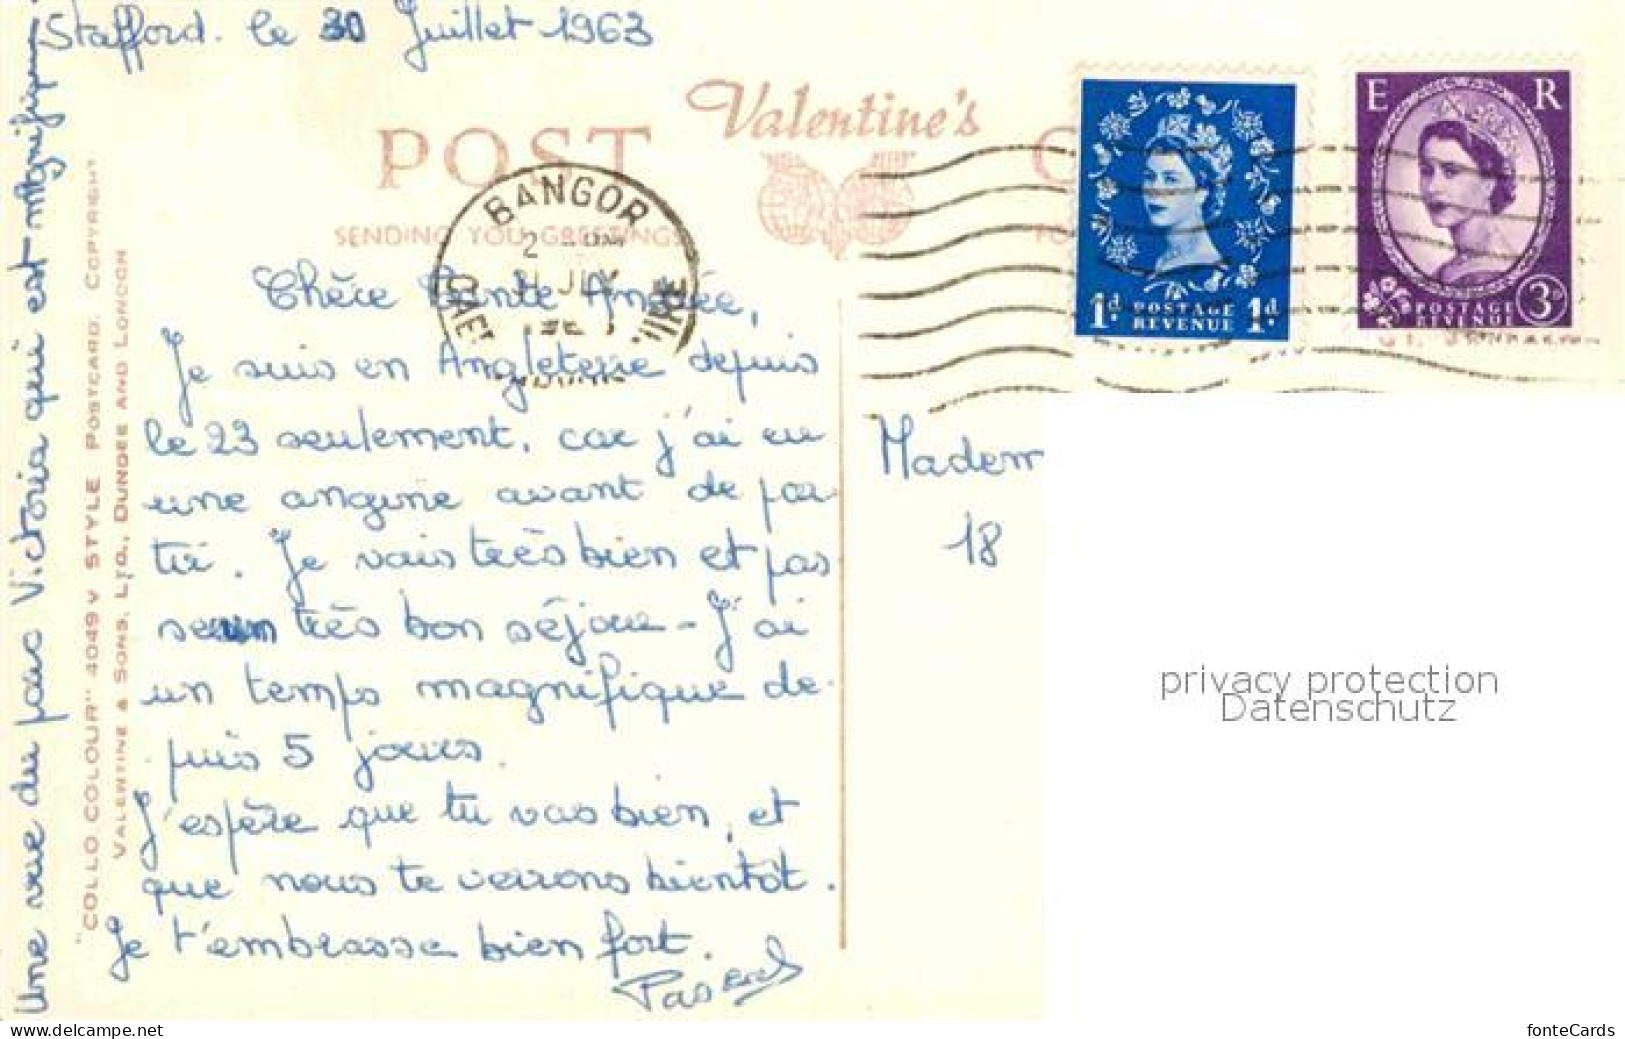 Stafford. le 30 Juillet 1963
Valentine's
POST
SENDING YOU GREETINGS
BANGOR
2
31 JLY
E R
1d POSTAGE REVENUE 1d
POSTAGE REVENUE 3D
Chère Tante Andrée,
Je suis en Angleterre depuis
le 23 seulement, car j'ai eu
une angine avant de par
tir. Je vais très bien et pas
se un très bon séjour - J'ai
un temps magnifique de
puis 5 jours.
J'espère que tu vas bien, et
que nous te verrons bientôt.
Je t'embrasse bien fort.
Pascal
Madem
18
Une vue du parc Victoria qui est magnifique
"COLLO COLOUR" 4049 V STYLE POSTCARD. COPYRIGHT
VALENTINE & SONS, LTD., DUNDEE AND LONDON
privacy protection
Datenschutz
www.delcampe.net
fonteCards